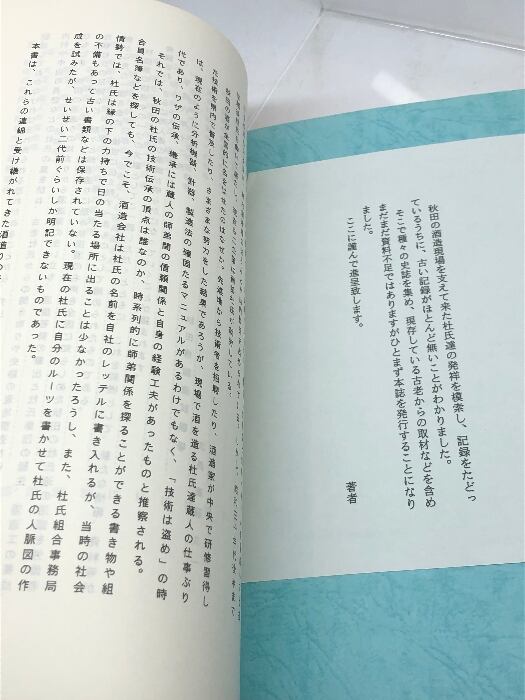 秋田の酒造現場を支えて来た杜氏達の発祥を模索し、記録をたどっ
ているうちに、古い記録がほとんど無いことがわかりました。
そこで種々の史誌を集め、現存している古老からの取材などを含め
まだまだ資料不足ではありますがひとまず本誌を発行することになり
ました。
ここに謹んで進呈致します。
著者
は、現在のように分析機器、計器、製造法の確固たるマニュアルがあるわけでもなく、「技術は盗め」の時
代であり、ワザの伝承、継承には蔵人の師弟間の信頼関係と自身の経験工夫があったものと推察される。
それでは、秋田の杜氏の技術伝承の頂点は誰なのか、時系列的に師弟関係を探ることができる書き物や組
合員名簿などを探しても、今でこそ、酒造会社は杜氏の名前を自社のレッテルに書き入れるが、当時の社会
情勢では、杜氏は縁の下の力持ちで日の当たる場所に出ることは少なかったろうし、また、杜氏組合事務局
の不備もあって古い書類などは保存されていない。現在の杜氏に自分のルーツを書かせて杜氏の人脈図の作
成を試みたが、せいぜい二代前ぐらいしか明記できないものであった。
本書は、これらの連綿と受け継がれてきた酒造りの